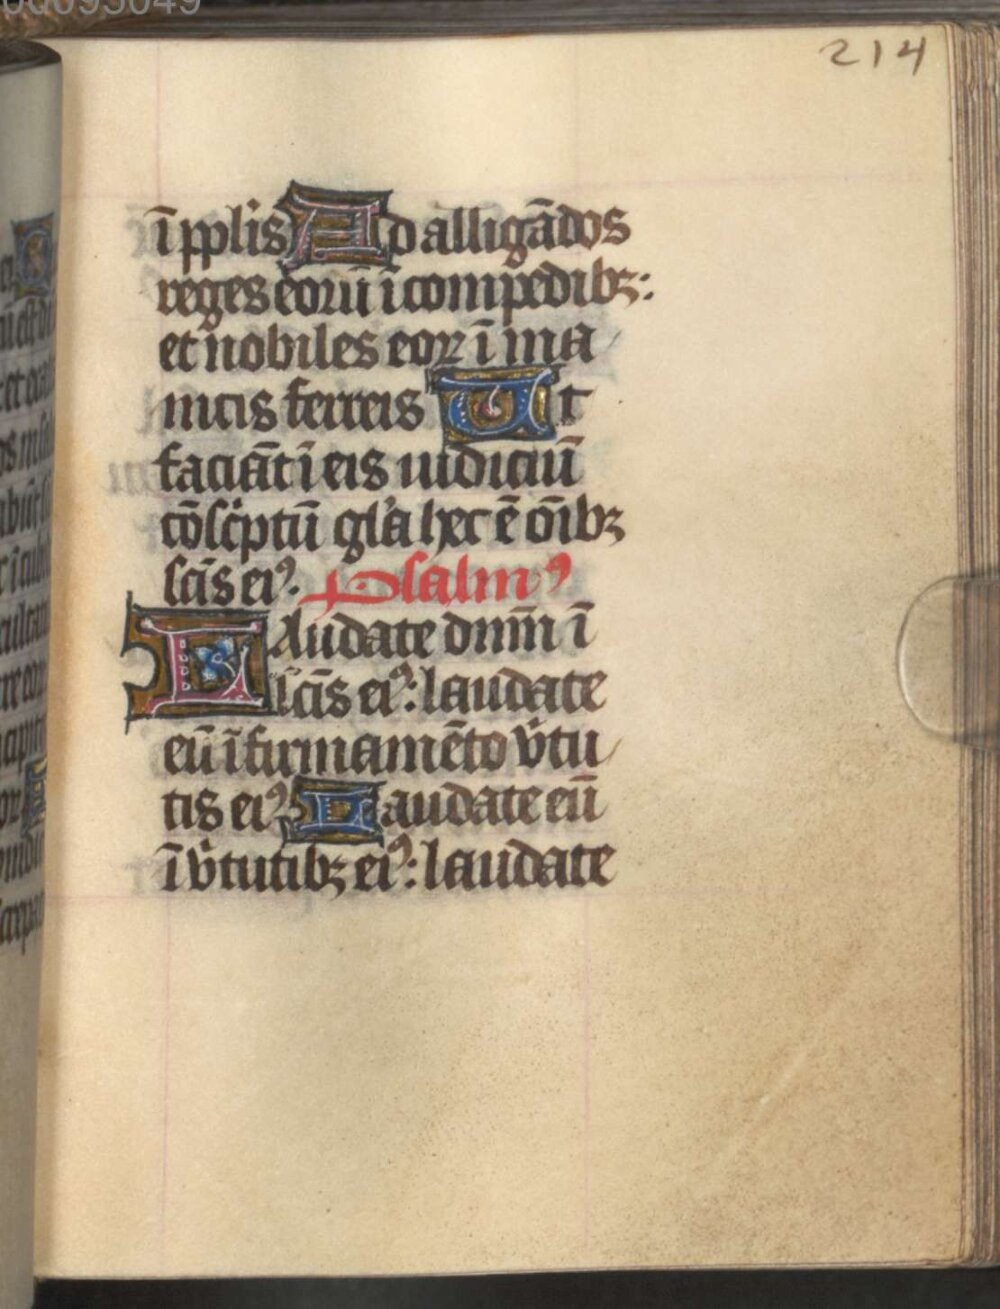 214
ī pplis Ad alligādos
reges eorū ī compedibꝫ:
et nobiles eoꝝ ī ma
nicis ferreis Ut
faciāt ī eis iudiciū
cōsc͛ptū gl̓a hec ē oībꝫ
scīs eiꝰ. Psalmꝰ
Laudate dnm̄ ī
scīs eiꝰ: laudate
eū ī firmamēto v̓tu
tis eiꝰ Laudate eū
ī v̓tutibꝫ eiꝰ: laudate